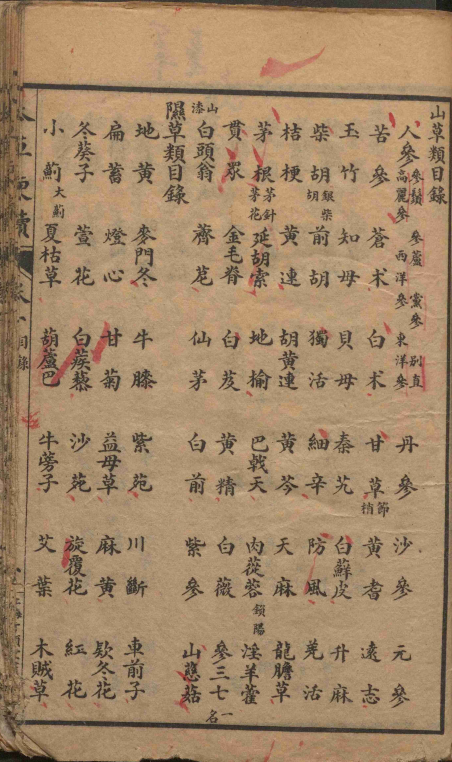 山草類目錄
人參 參鬚 高麗參 參蘆 西洋參 黨參 東洋參 別直 丹參 沙參 元參
苦參 蒼术 白术 甘草 節 梢 黃耆 遠志
玉竹 知母 貝母 秦艽 白蘚皮 升麻
柴胡 銀柴胡 前胡 獨活 細辛 防風 羌活
桔梗 黃連 胡黃連 黃芩 天麻 龍膽草
茅根 茅針 茅花 延胡索 地榆 巴戟天 肉蓯蓉 鎖陽 淫羊藿
貫眾 金毛脊 白芨 黃精 白薇 參三七 一名
山漆 白頭翁 薺苨 仙茅 白前 紫參 山慈菇
隰草類目錄
地黃 麥門冬 牛膝 紫菀 川斷 車前子
扁蓄 燈心 甘菊 益母草 麻黃 欵冬花
冬葵子 萱花 白蒺藜 沙苑 旋覆花 紅花
小薊 大薊 夏枯草 葫蘆巴 牛蒡子 艾葉 木賊草
目錄